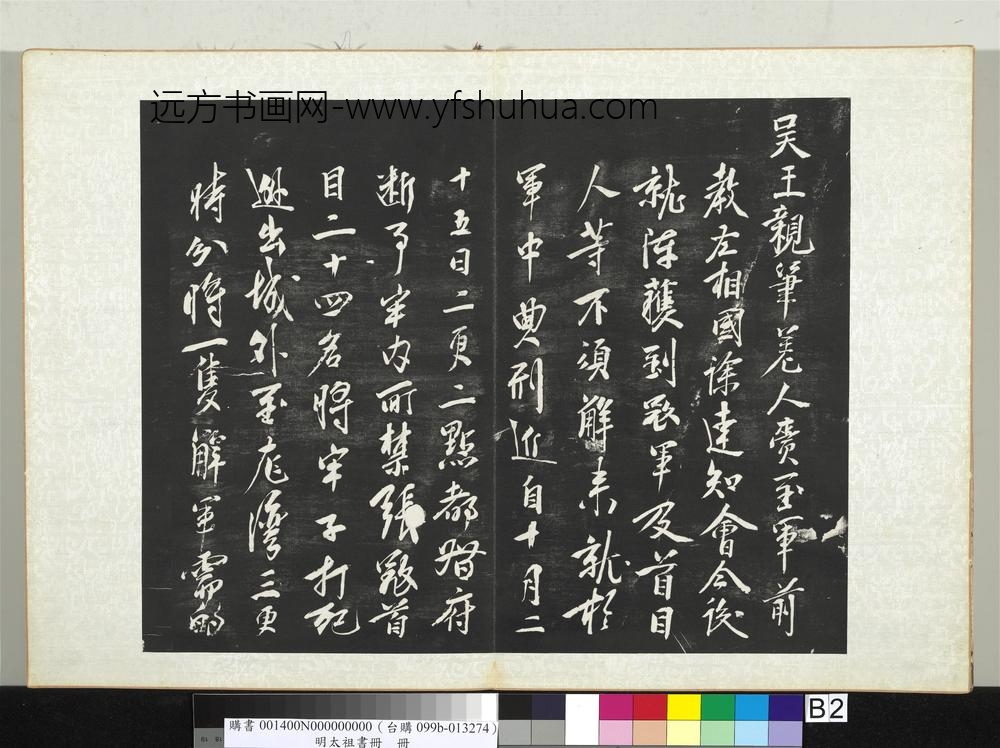 远方书画网-www.yfshuhua.com
吴王親筆差人賫至軍前
教左相國徐達知會今後
就陣獲到寇軍及首目
人等不須解來就於
軍中典刑近自十月二
十五日二更二點都督府
斷事牢内所禁張寇首
目二十四名將牢子打死
越出城外至龍灣三更
時分將一隻解軍需的
購書 001400N000000000 (台購 099b-013274)
明太祖書冊 冊
B2